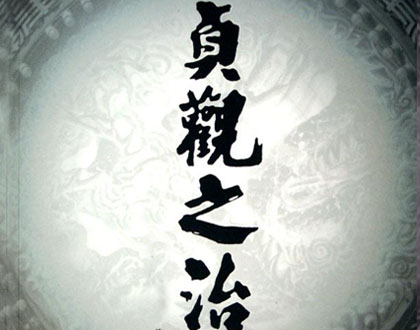 貞觀之治